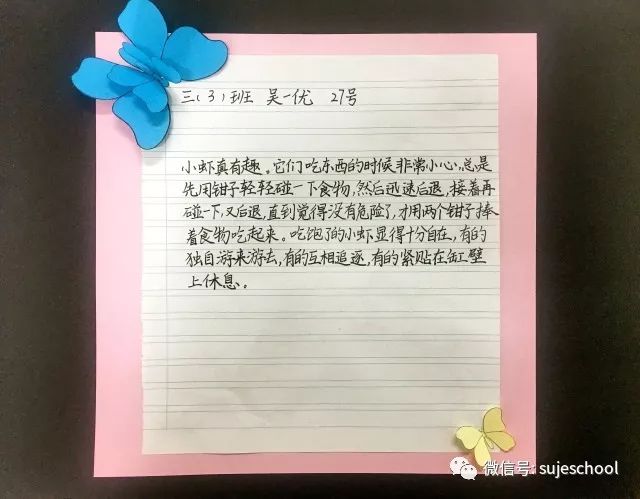 三(3)班 吴一优 27号
小虾真有趣。它们吃东西的时候非常小心,总是
先用钳子轻轻碰一下食物,然后迅速后退,接着再
碰一下,又后退,直到觉得没有危险了,才用两个钳子捧
着食物吃起来。吃饱了的小虾显得十分自在,有的
独自游来游去,有的互相追逐,有的紧贴在缸壁
上休息。
微信号: sujeschool